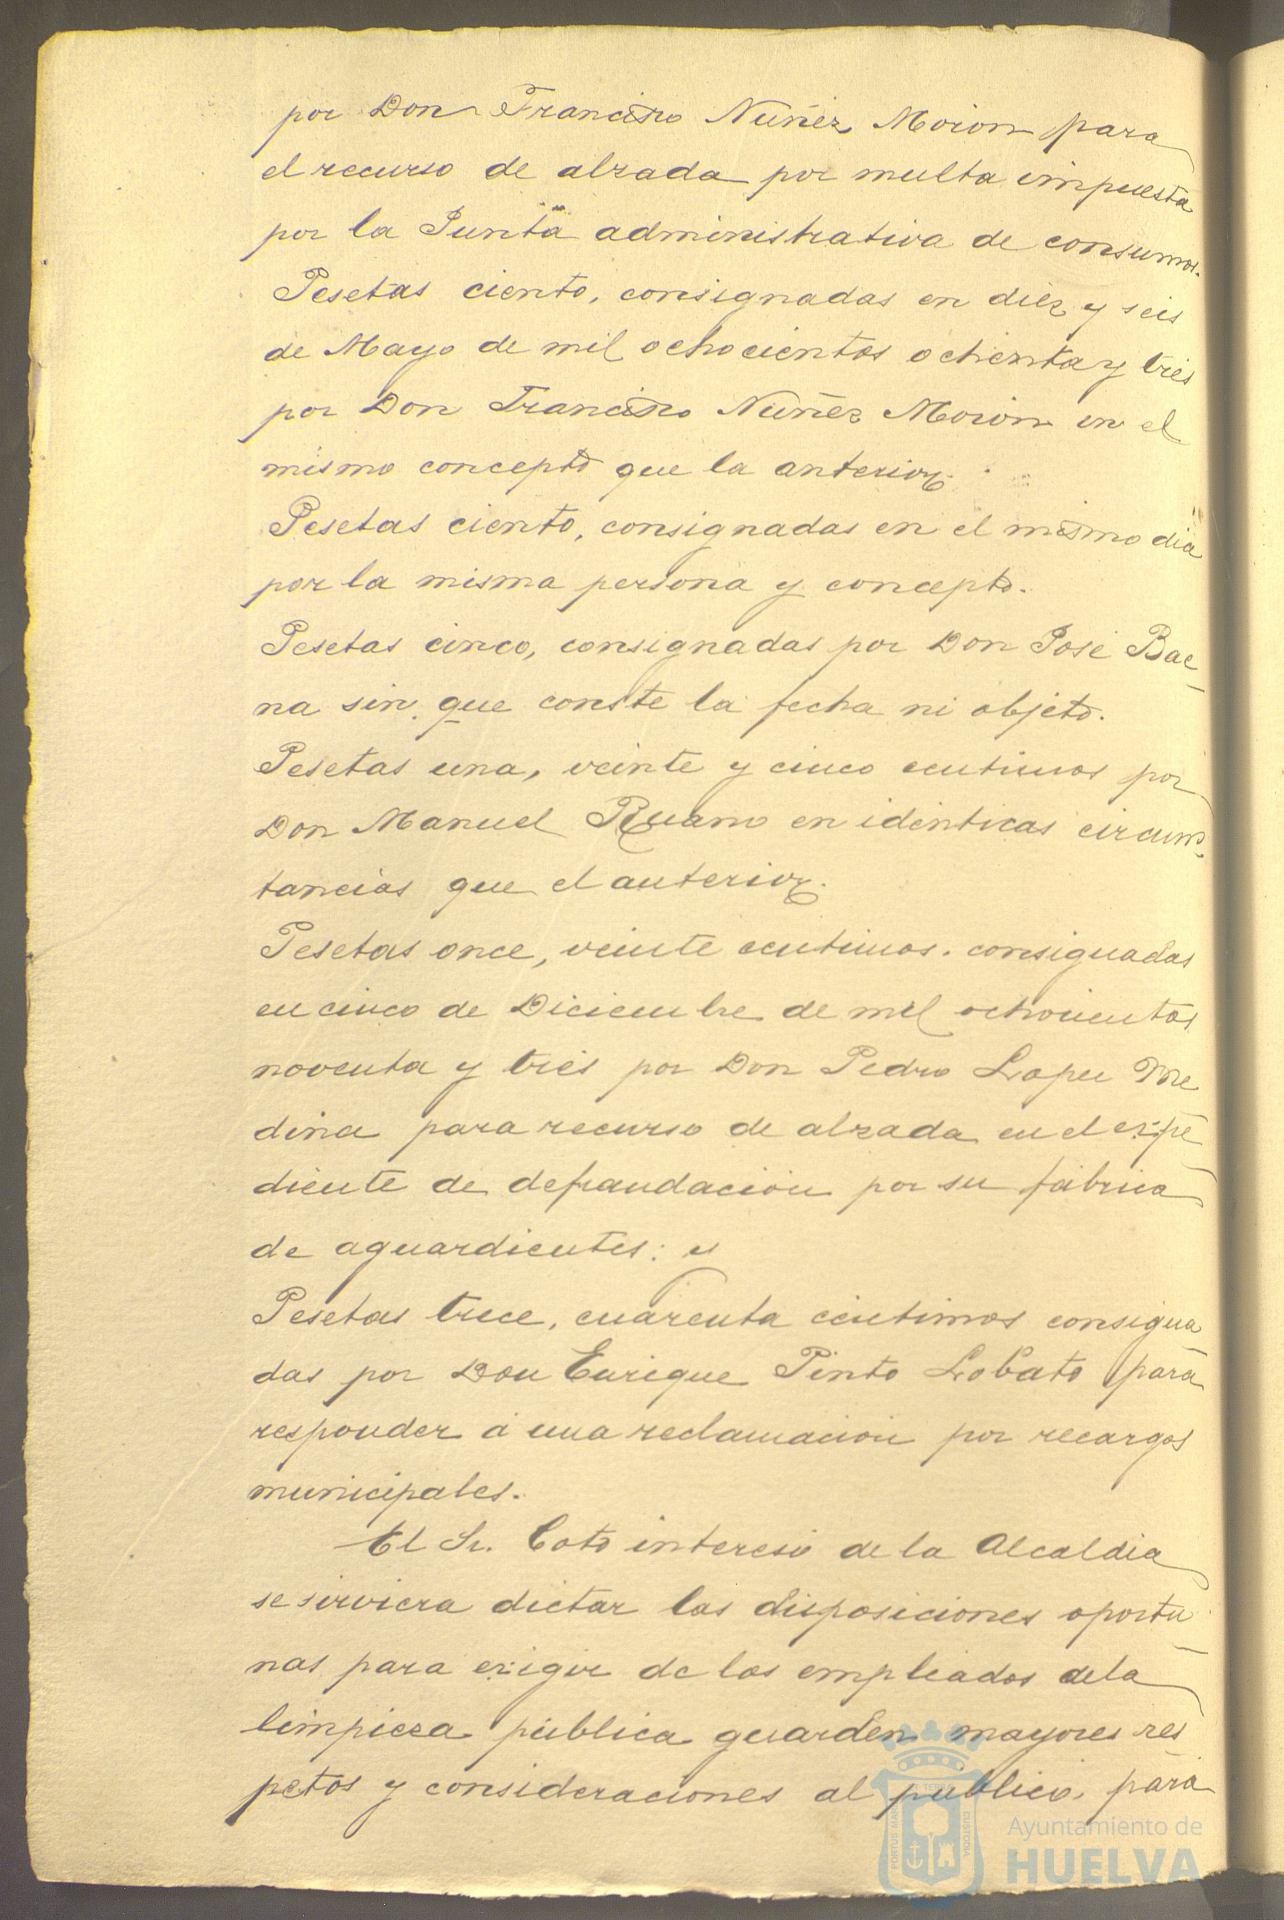 por Don Francisco Nuñez Moron para
el recurso de alzada por multa impuesta
por la Junta administrativa de consumos.
Pesetas ciento, consignadas en diez y seis
de Mayo de mil ochocientos ochenta y tres
por Don Francisco Nuñez Moron en el
mismo concepto que la anterior.
Pesetas ciento, consignadas en el mismo dia
por la misma persona y concepto.
Pesetas cinco, consignadas por Don José Bae-
na sin que conste la fecha ni objeto.
Pesetas una, veinte y cinco centimos por
Don Manuel Ruano en identicas circuns-
tancias que el anterior.
Pesetas once, veinte centimos. consignadas
en cinco de Diciembre de mil ochocientos
noventa y tres por Don Pedro Lopez Me
dina para recurso de alzada en el espe-
diente de defraudación por su fábrica
de aguardientes: y
Pesetas trece, cuarenta centimos consigna
das por Don Enrique Pinto Lobato para
responder á una reclamacion por recargos
municipales.
El Sr. Coto interesó de la Alcaldia
se sirviera dictar las disposiciones oportu-
nas para exigir de los empleados de la
limpieza pública guarden mayores res
petos y consideraciones al publico, para
Ayuntamiento de
HUELVA